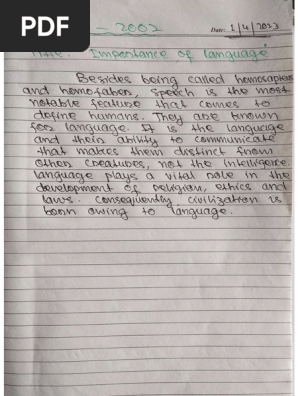 PDF
- 2002
Date: 1/4/2023
Title: Importance of language
Besides being called homosapiens
and homofaber, speech is the most
notable feature that comes to
define humans. They are known
for language. It is the language
and their ability to communicate
that makes them distinct from
other creatures, not the intelligence.
language plays a vital role in the
development of religion, ethics and
laws. consequently civilization is
born owing to language.